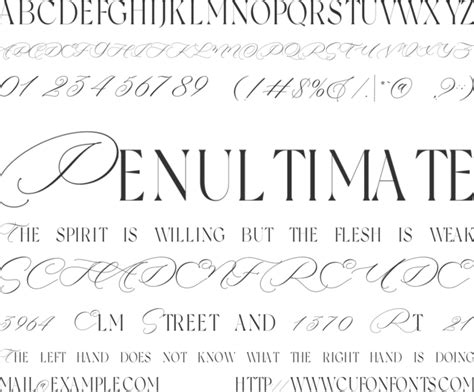 ABCDEFGHIJKLMNOPQRSTUVWXYZ
ABCDEFGHIJKLMNOPQRSTUVWXYZ
0123456789 (!#$%&/|\@
PENULTIMATE
THE SPIRIT IS WILLING BUT THE FLESH IS WEAK
SCHADENFREUDE
3964 ELM STREET AND 1370 RT 21
THE LEFT HAND DOES NOT KNOW WHAT THE RIGHT HAND IS DOING
MAIL@EXAMPLE.COM HTTP://WWW.CUFONFONTS.COM